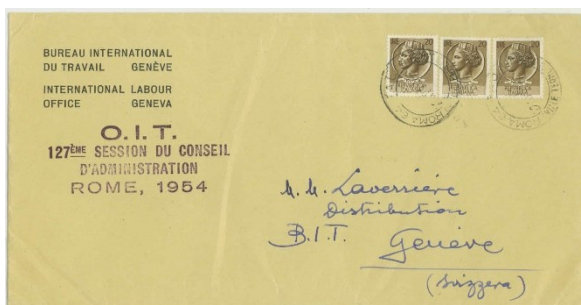 BUREAU INTERNATIONAL
DU TRAVAIL GENÈVE
INTERNATIONAL LABOUR
OFFICE GENEVA
O.I.T.
127ÈME SESSION DU CONSEIL
D'ADMINISTRATION
ROME, 1954
20 20 20
ROMA
M. M. Laverrière
Distribution
B.I.T. Genève
(Svizzera)